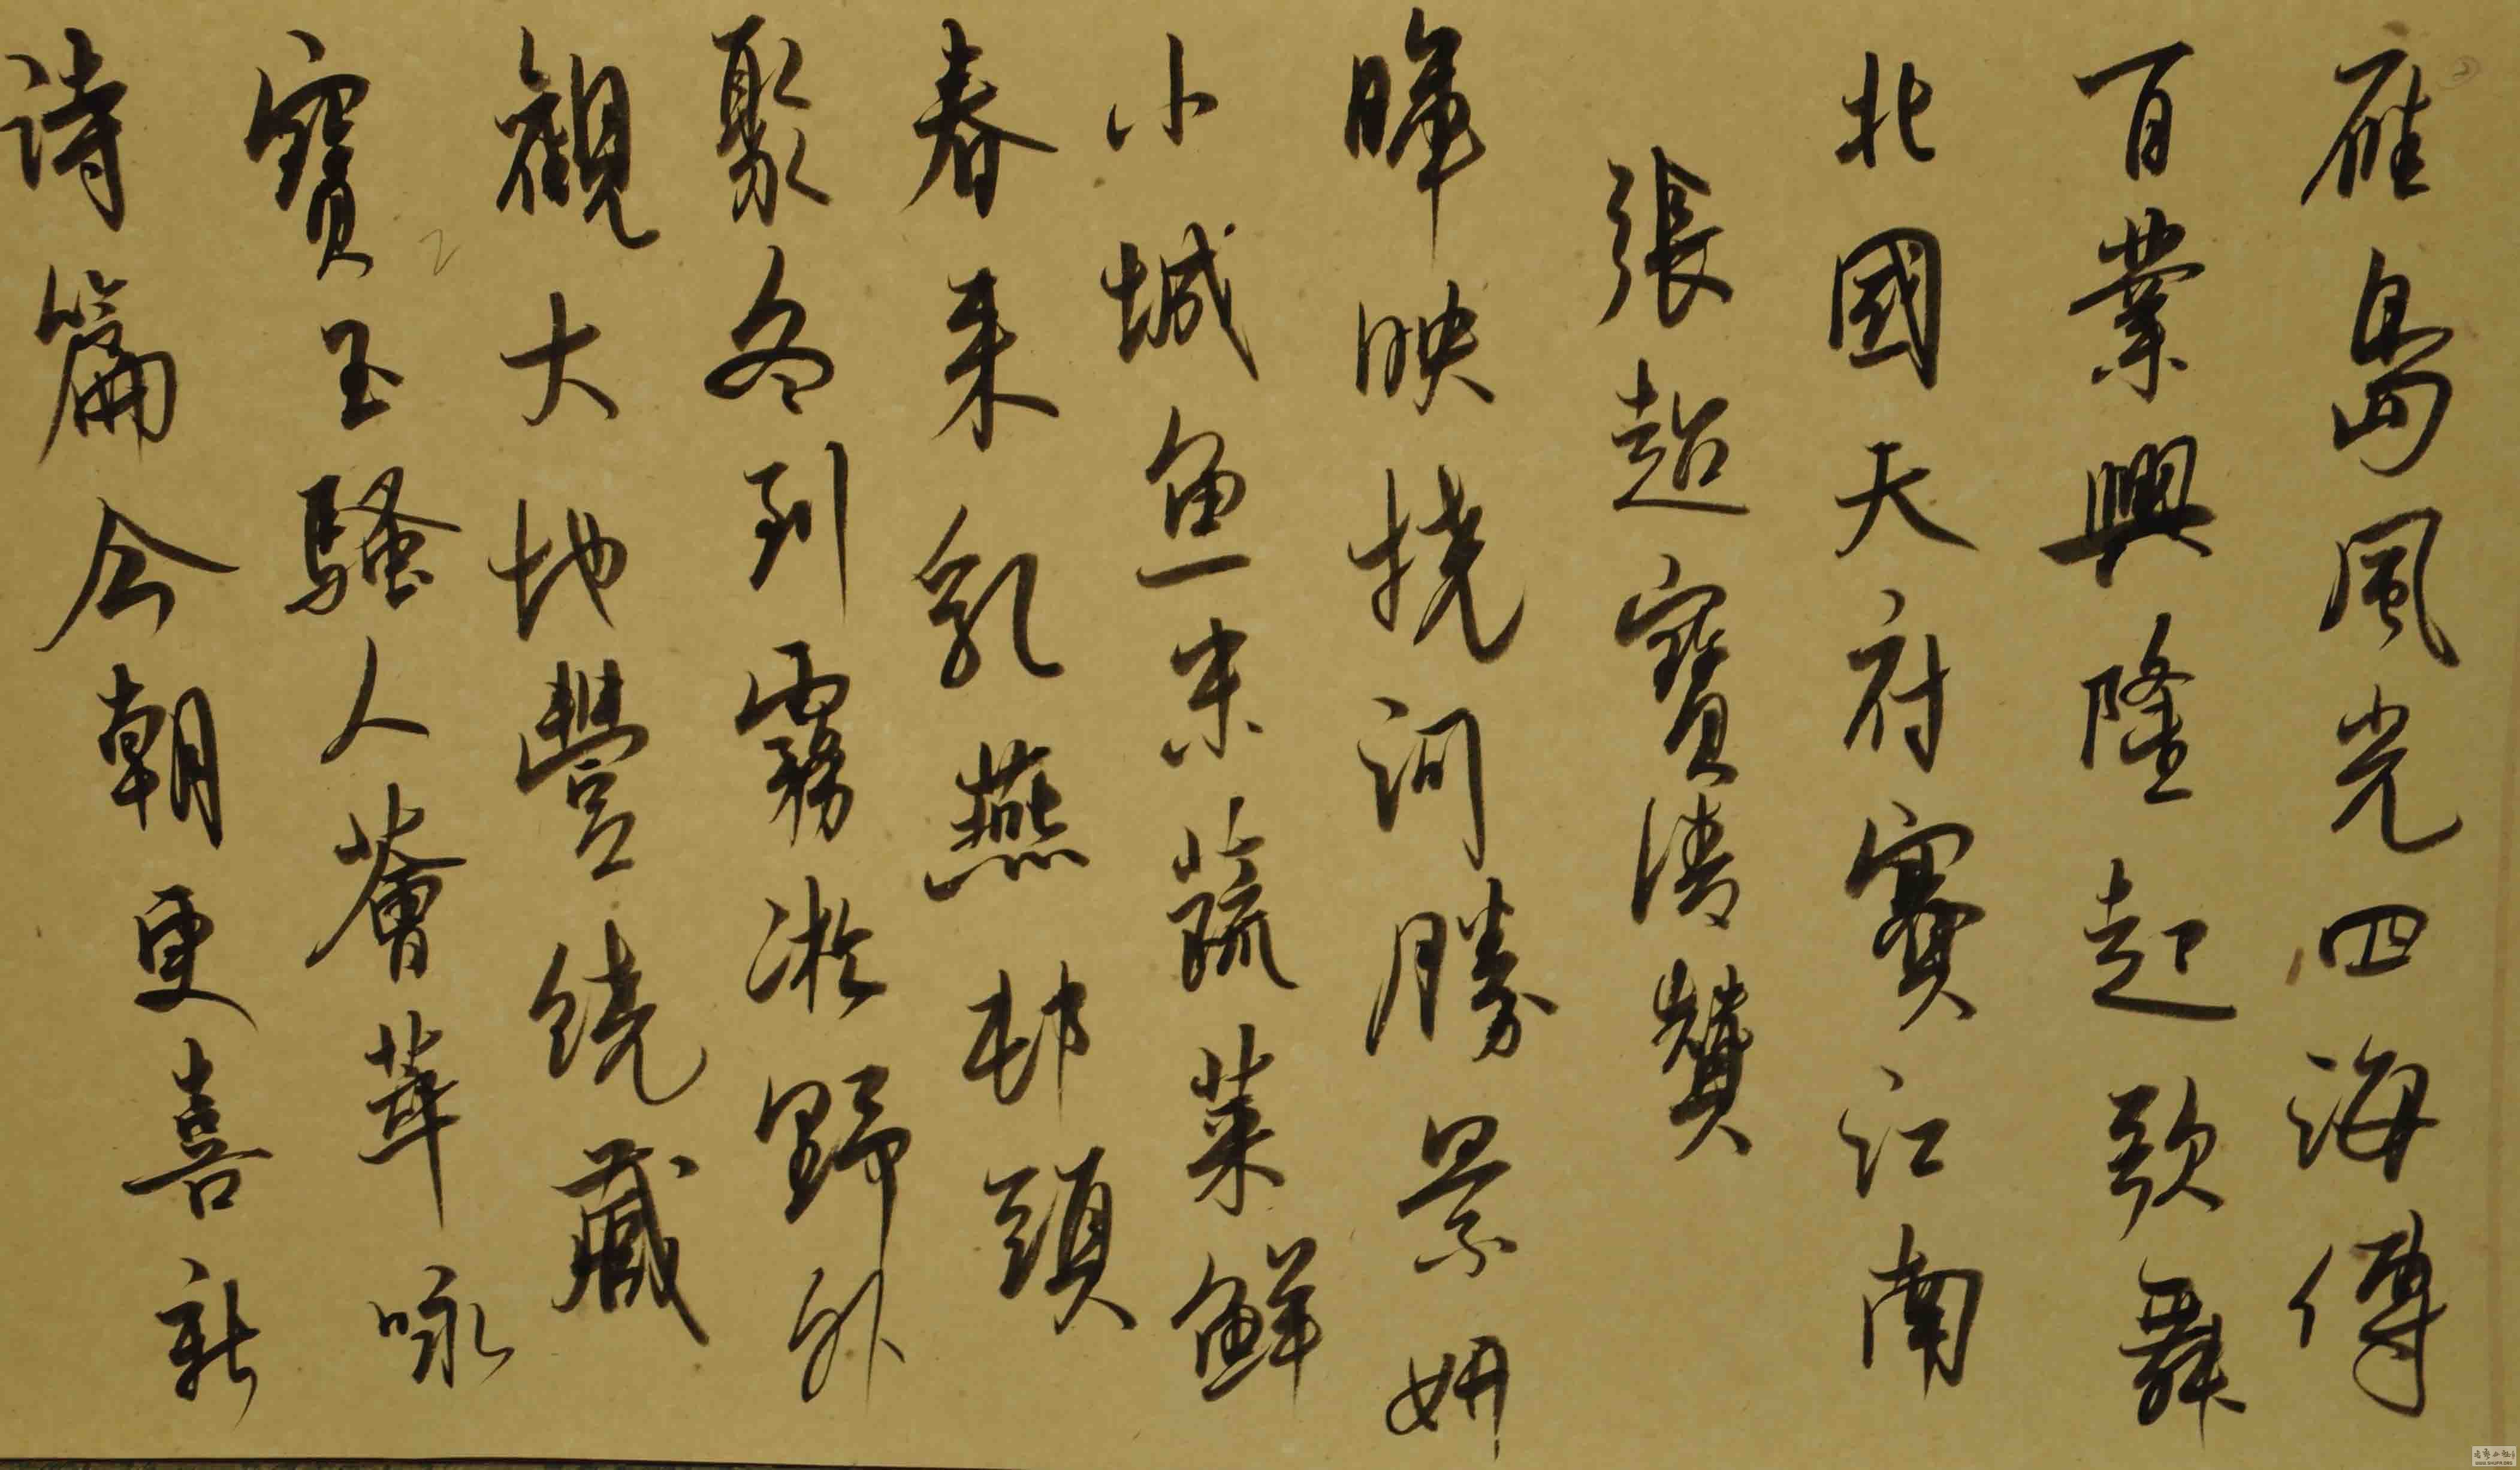 雁島風光四海傳
百業興隆起歌舞
北國天府賽江南
張超寶清贊
暉映撓河勝景妍
小城魚米蔬菜鮮
春來乳燕邨頭
聚冬到霧凇野外
觀大地豐饒藏
寶玉騷人薈萃咏
詩篇今朝更喜新